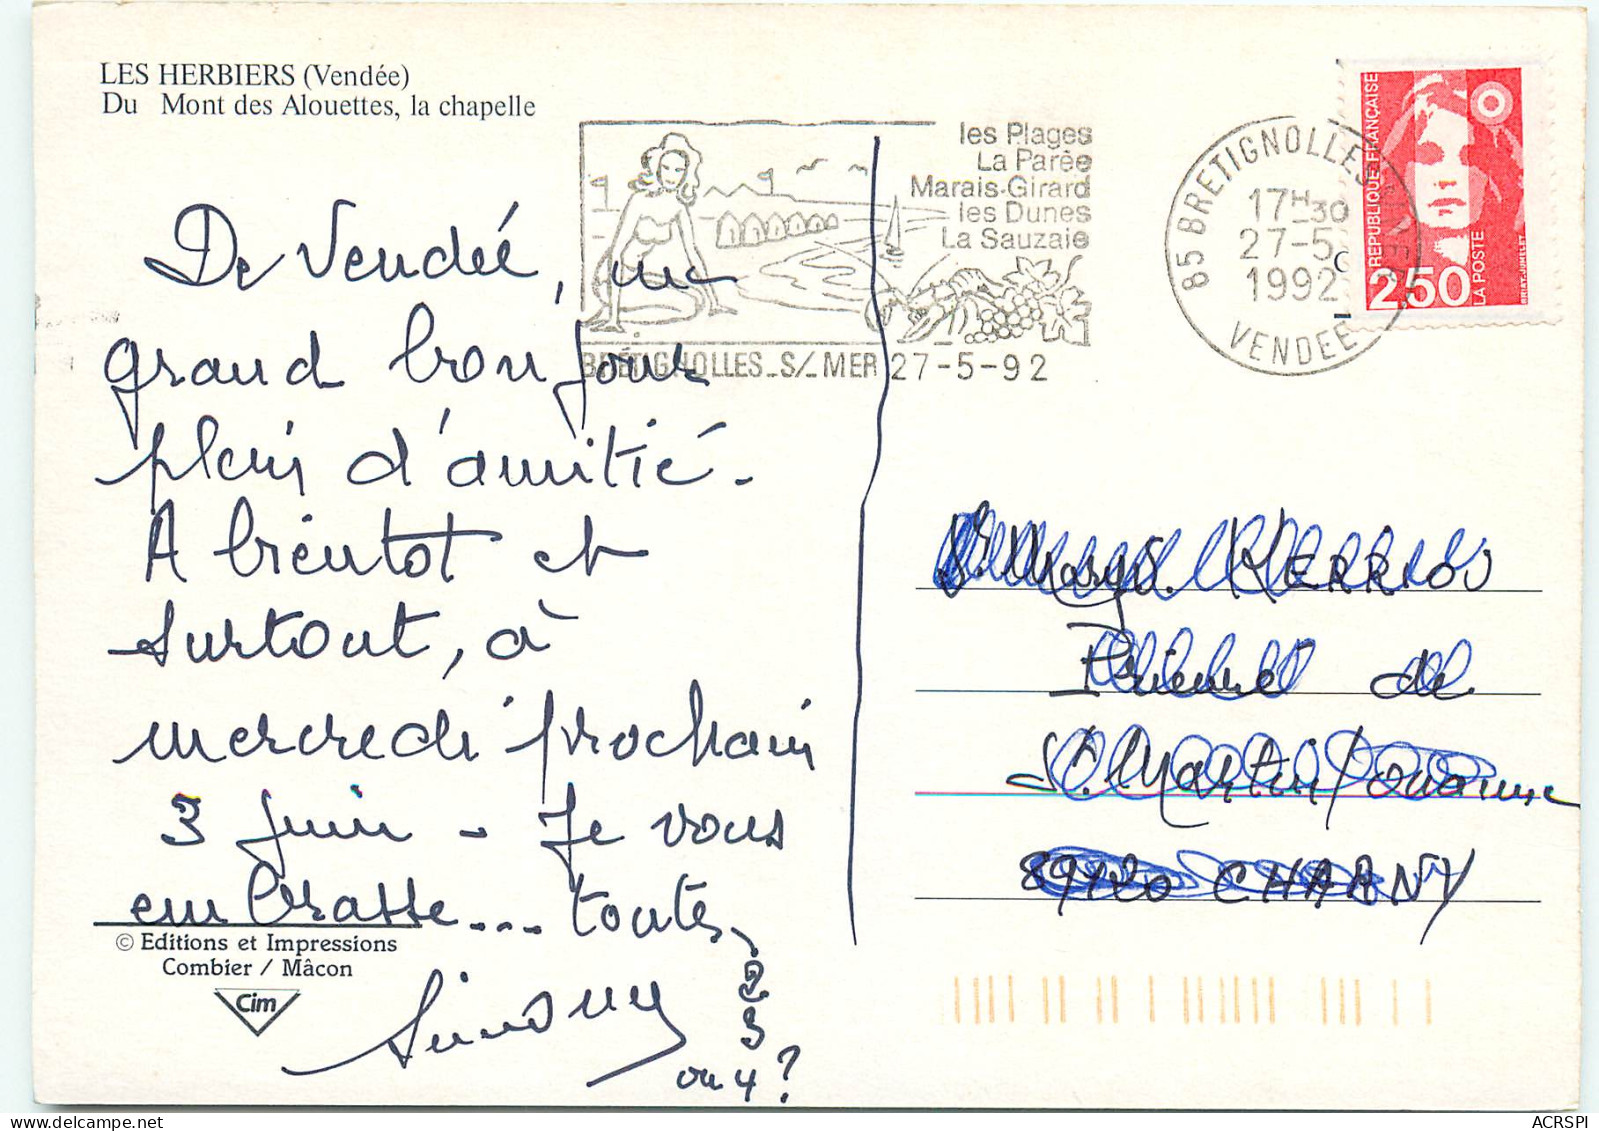 LES HERBIERS (Vendée)
Du Mont des Alouettes, la chapelle
De Vendée, un
grand bonjour
plein d'amitié.
A bientot et
surtout, à
mercredi prochain
3 juin - Je vous
embrasse... toutes
2
3
ou 4 ?
Simony
© Editions et Impressions
Combier / Mâcon
Cim
les Plages
La Parée
Marais-Girard
les Dunes
La Sauzaie
BRETIGNOLLES_S/_MER 27-5-92
85 BRETIGNOLLES S/MER
17H30
27-5
1992
VENDEE
REPUBLIQUE FRANÇAISE
2,50
LA POSTE
BRIAT-JUMELET
KERRIOU
Prieuré de
St Martin/Ouanne
89120 CHARNY
ACRSPI